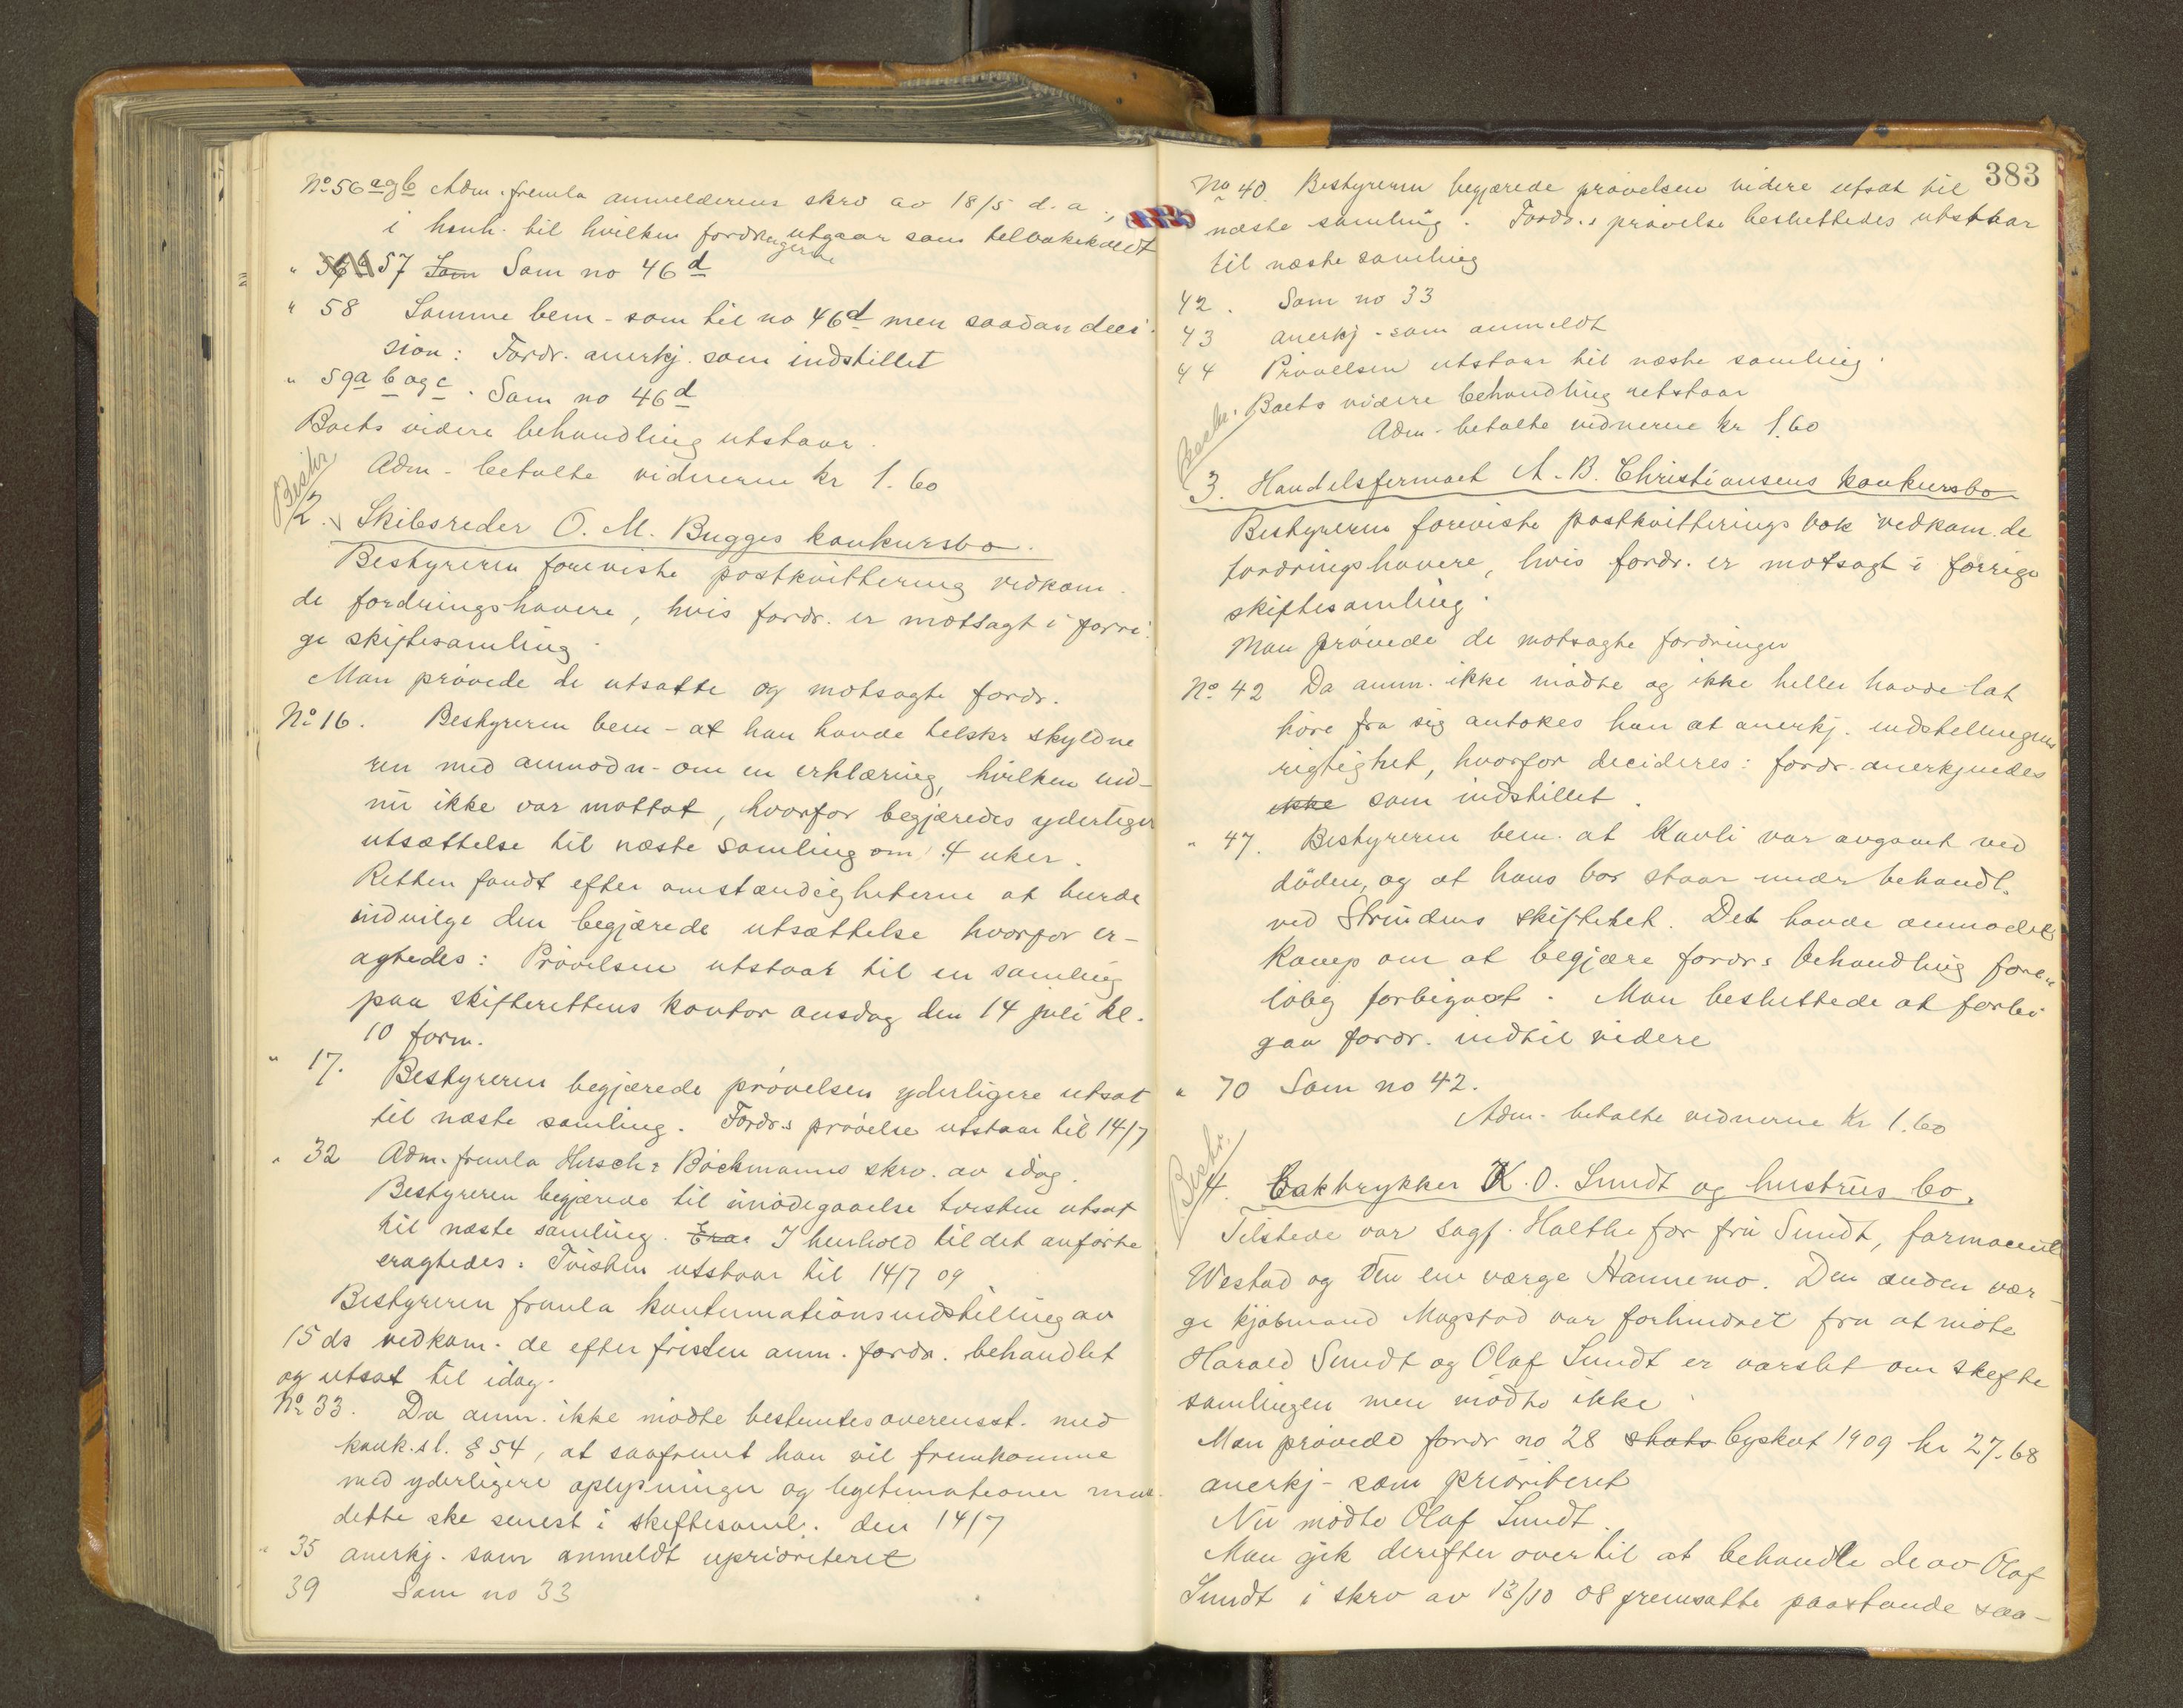 No 56 a og b Adm. fremla anmelderens skrv av 18/5 d. a.,
i henh. til hvilken fordringerne utgaar som tilbakekaldt
" 57 Som Som no 46 d
" 58 Samme bem - som til no 46 d men saadan deci-
sion: Fordr. anerkj. som indstillet
" 59 a b og c. Som no 46 d
Boets videre behandling utstaar.
Adm - betalte vidnerne kr 1.60
Beskr
2. Skibsreder O. M. Bugges konkursbo.
Bestyreren foreviste postkvittering vedkom-
de fordringshavere, hvis fordr. er motsagt i forri-
ge skiftesamling.
Man prøvede de utsatte og motsagte fordr.
No 16. Bestyreren bem - at han havde tilskr skyldne
ren med anmodn - om en erklæring, hvilken end-
nu ikke var mottat, hvorfor begjæredes yderliger
utsættelse til næste samling om 4 uker.
Retten fandt efter omstændigheterne at burde
indvilge den begjærede utsættelse hvorfor er-
agtedes: Prøvelsen utstaar til en samling
paa skifterettens kontor onsdag den 14 juli kl.
10 form.
" 17. Bestyreren begjærede prøvelsen yderligere utsat
til næste samling. Fordr.s prøvelse utstaar til 14/7
" 32 Adm. fremla Hirsch: Bøckmanns skrv. av idag.
Bestyreren begjærede til imødegaaelse tvisten utsat
til næste samling. Erae I henhold til det anførte
eragtedes: Tvisten utstaar til 14/7 09
Bestyreren fremla kontumationsindstilling av
15 ds vedkom- de efter fristen anm. fordr. behandlet
og utsat til idag.
No 33. Da anm. ikke mødte bestemtes overensst. med
konk.sl. § 54, at saafremt han vil fremkomme
med yderligere oplysninger og legitimationer maa
dette ske senest i skiftesaml. den 14/7
" 35 anerkj. som anmeldt uprioriteret
39 Som no 33
383
No 40. Bestyreren begjærede prøvelsen videre utsat til
næste samling. Fordr.s prøvelse besluttedes utstaar
til næste samling
42. Som no 33
43 anerkj - som anmeldt
44 Prøvelsen utstaar til næste samling.
Beskr. Boets videre behandling utstaar
Adm - betalte vidnerne kr 1.60
3. Handelsfirmaet A. B. Christiansens konkursbo
Bestyreren foreviste postkvitterings bok vedkom.de
fordringshavere, hvis fordr. er motsagt i forrige
skiftesamling.
Man prøvede de motsagte fordringer
No 42 Da anm. ikke mødte og ikke heller havde lat
høre fra sig antokes han at anerkj. indstillingens
rigtighet, hvorfor decideres: fordr. anerkjendes
ikke som indstillet.
" 47. Bestyreren bem. at Kavli var avgaaet ved
døden, og at hans bo staar under behandl.
ved Strindens skifteret. Det havde anmodet
Kamp om at begjære fordr.s behandling fore-
løbig forbigaat. Man besluttede at forbi
gaa fordr. indtil videre
" 70 Som no 42.
Adm - betalte vidnerne Kr 1.60
Beskr.
4. Baktrykker K. O. Sundt og hustrus bo.
Tilstede var sagf. Halthe for fru Sundt, farmaceut
Westad og den ene værge Hannemo. Den anden vær-
ge kjøbmand Magstad var forhindret fra at møte
Harald Sundt og Olaf Sundt er varslet om skifte
samlingen men mødte ikke.
Man prøvede fordr no 28 skats byskat 1909 kr 27.68
anerkj - som prioriteret
Nu mødte Olaf Sundt.
Man gik derefter over til at behandle de av Olaf
Sundt i skrv av 13/10 08 fremsatte paastande saa-